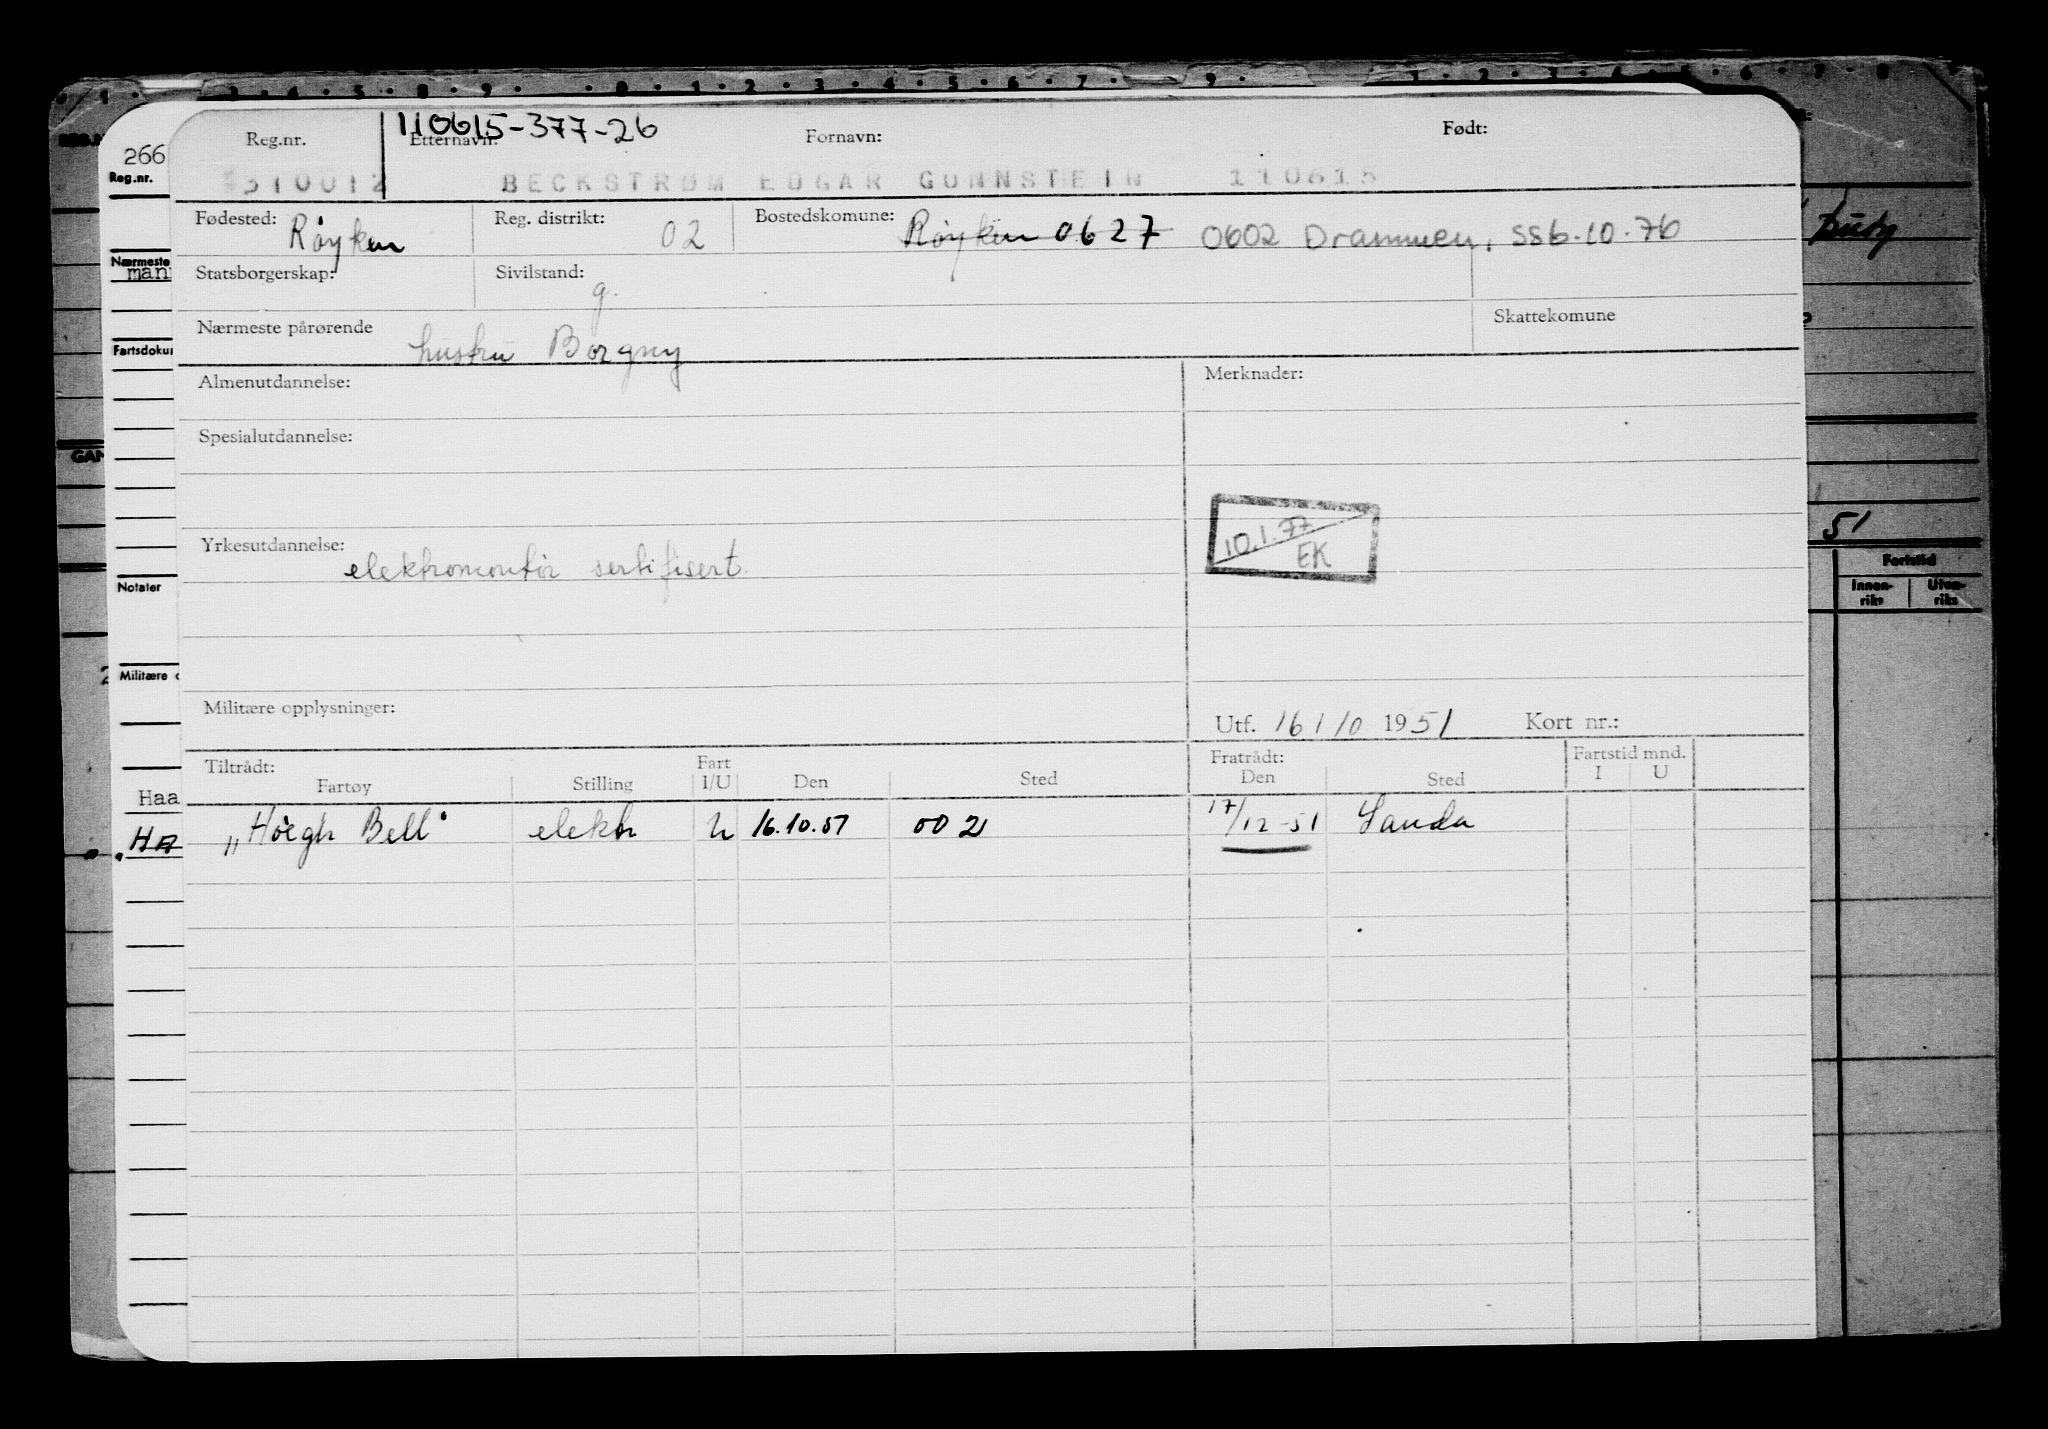 110615-377-26
Reg.nr. Etternavn: Fornavn: Født:
310012 BECKSTRØM EDGAR GUNNSTEIN 110615
Fødested: Røyken Reg. distrikt: 02 Bostedskomune: Røyken 0627 0602 Drammen, SSB.10.76
Statsborgerskap: Sivilstand: g.
Nærmeste pårørende hustru Borgny Skattekomune
Almenutdannelse: Merknader:
Spesialutdannelse:
10.1.77
EK
Yrkesutdannelse: elektromontør sertifisert.
Militære opplysninger: Utf. 16/10 1951 Kort nr.:
Tiltrådt: Fart Fratrådt: Fartstid mnd.
Fartøy Stilling I/U Den Sted Den Sted I U
"Höegh Bell" elektr U 16.10.51 002 17/12-51 Sauda
266
Reg.nr.
Nærmeste
man
Fartsdokur
Notater
Militære o
Haa
HA
GAN
51
Fartstid
Innen-
riks
Uten-
riks